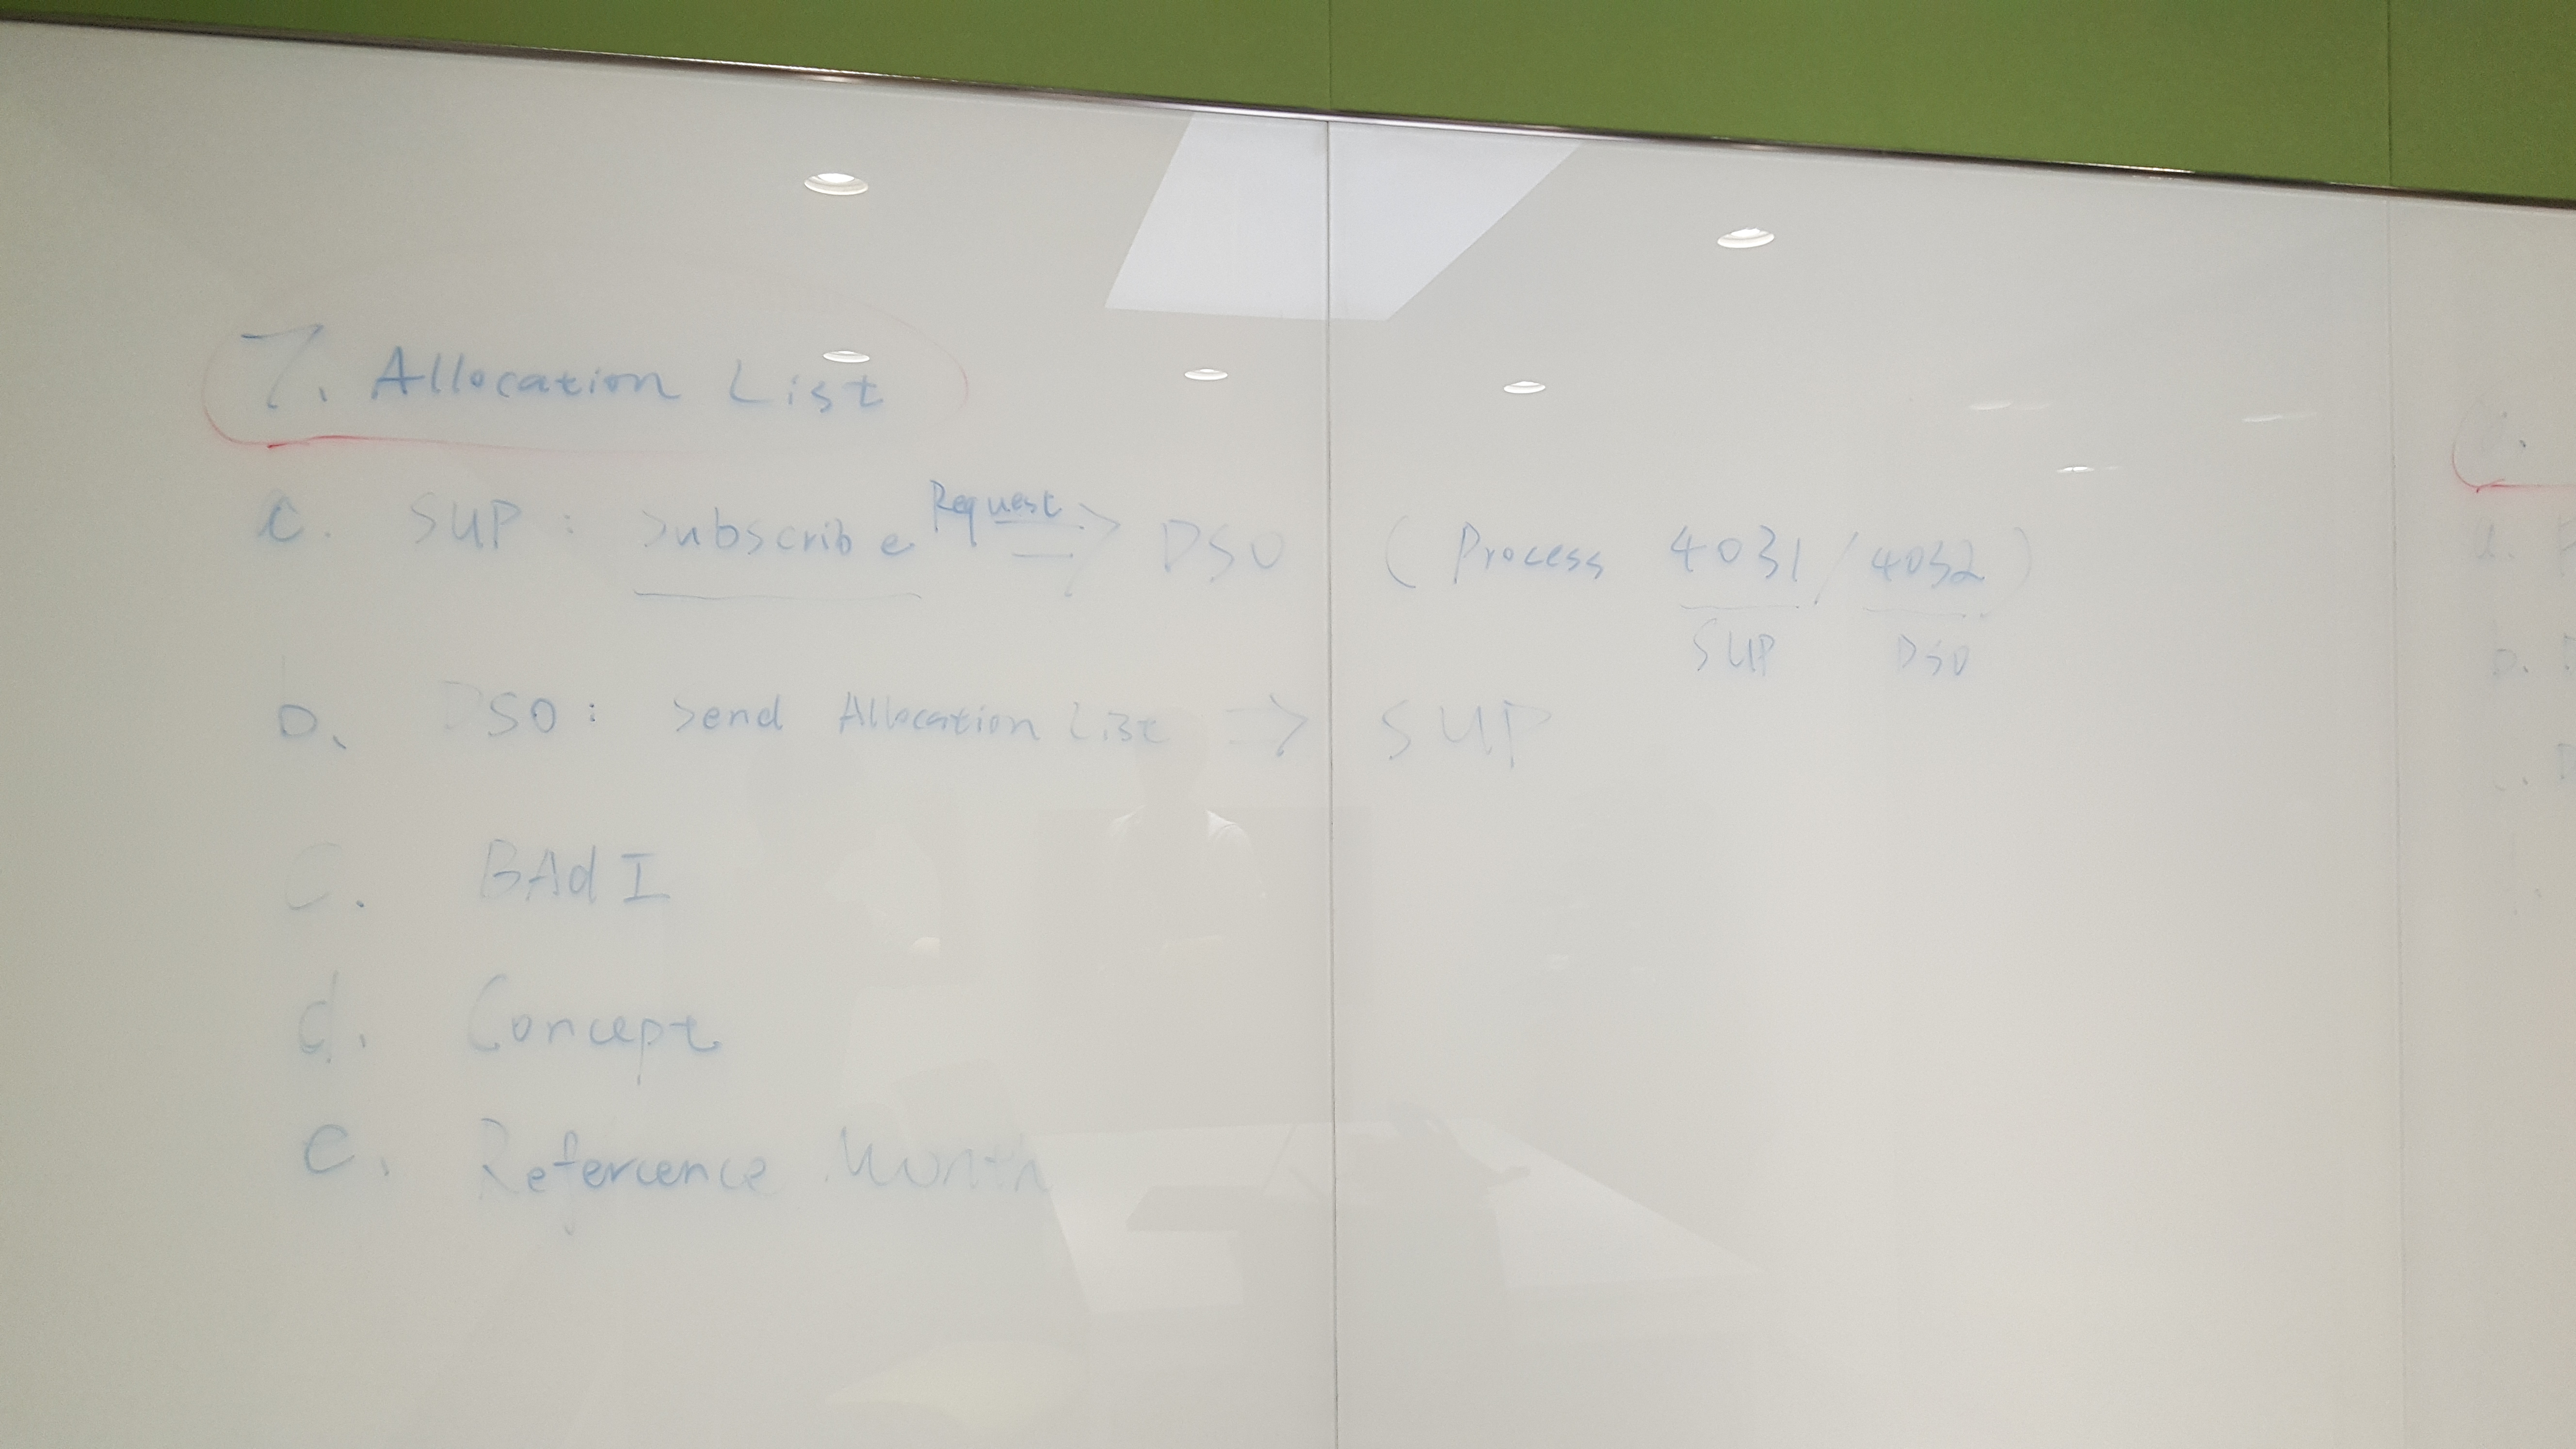 7. Allocation List
a. SUP : Subscribe Request => DSO ( Process 4031 / 4032 )
SUP DSO
b. DSO : Send Allocation List => SUP
c. BAdI
d. Concept
e. Reference Month